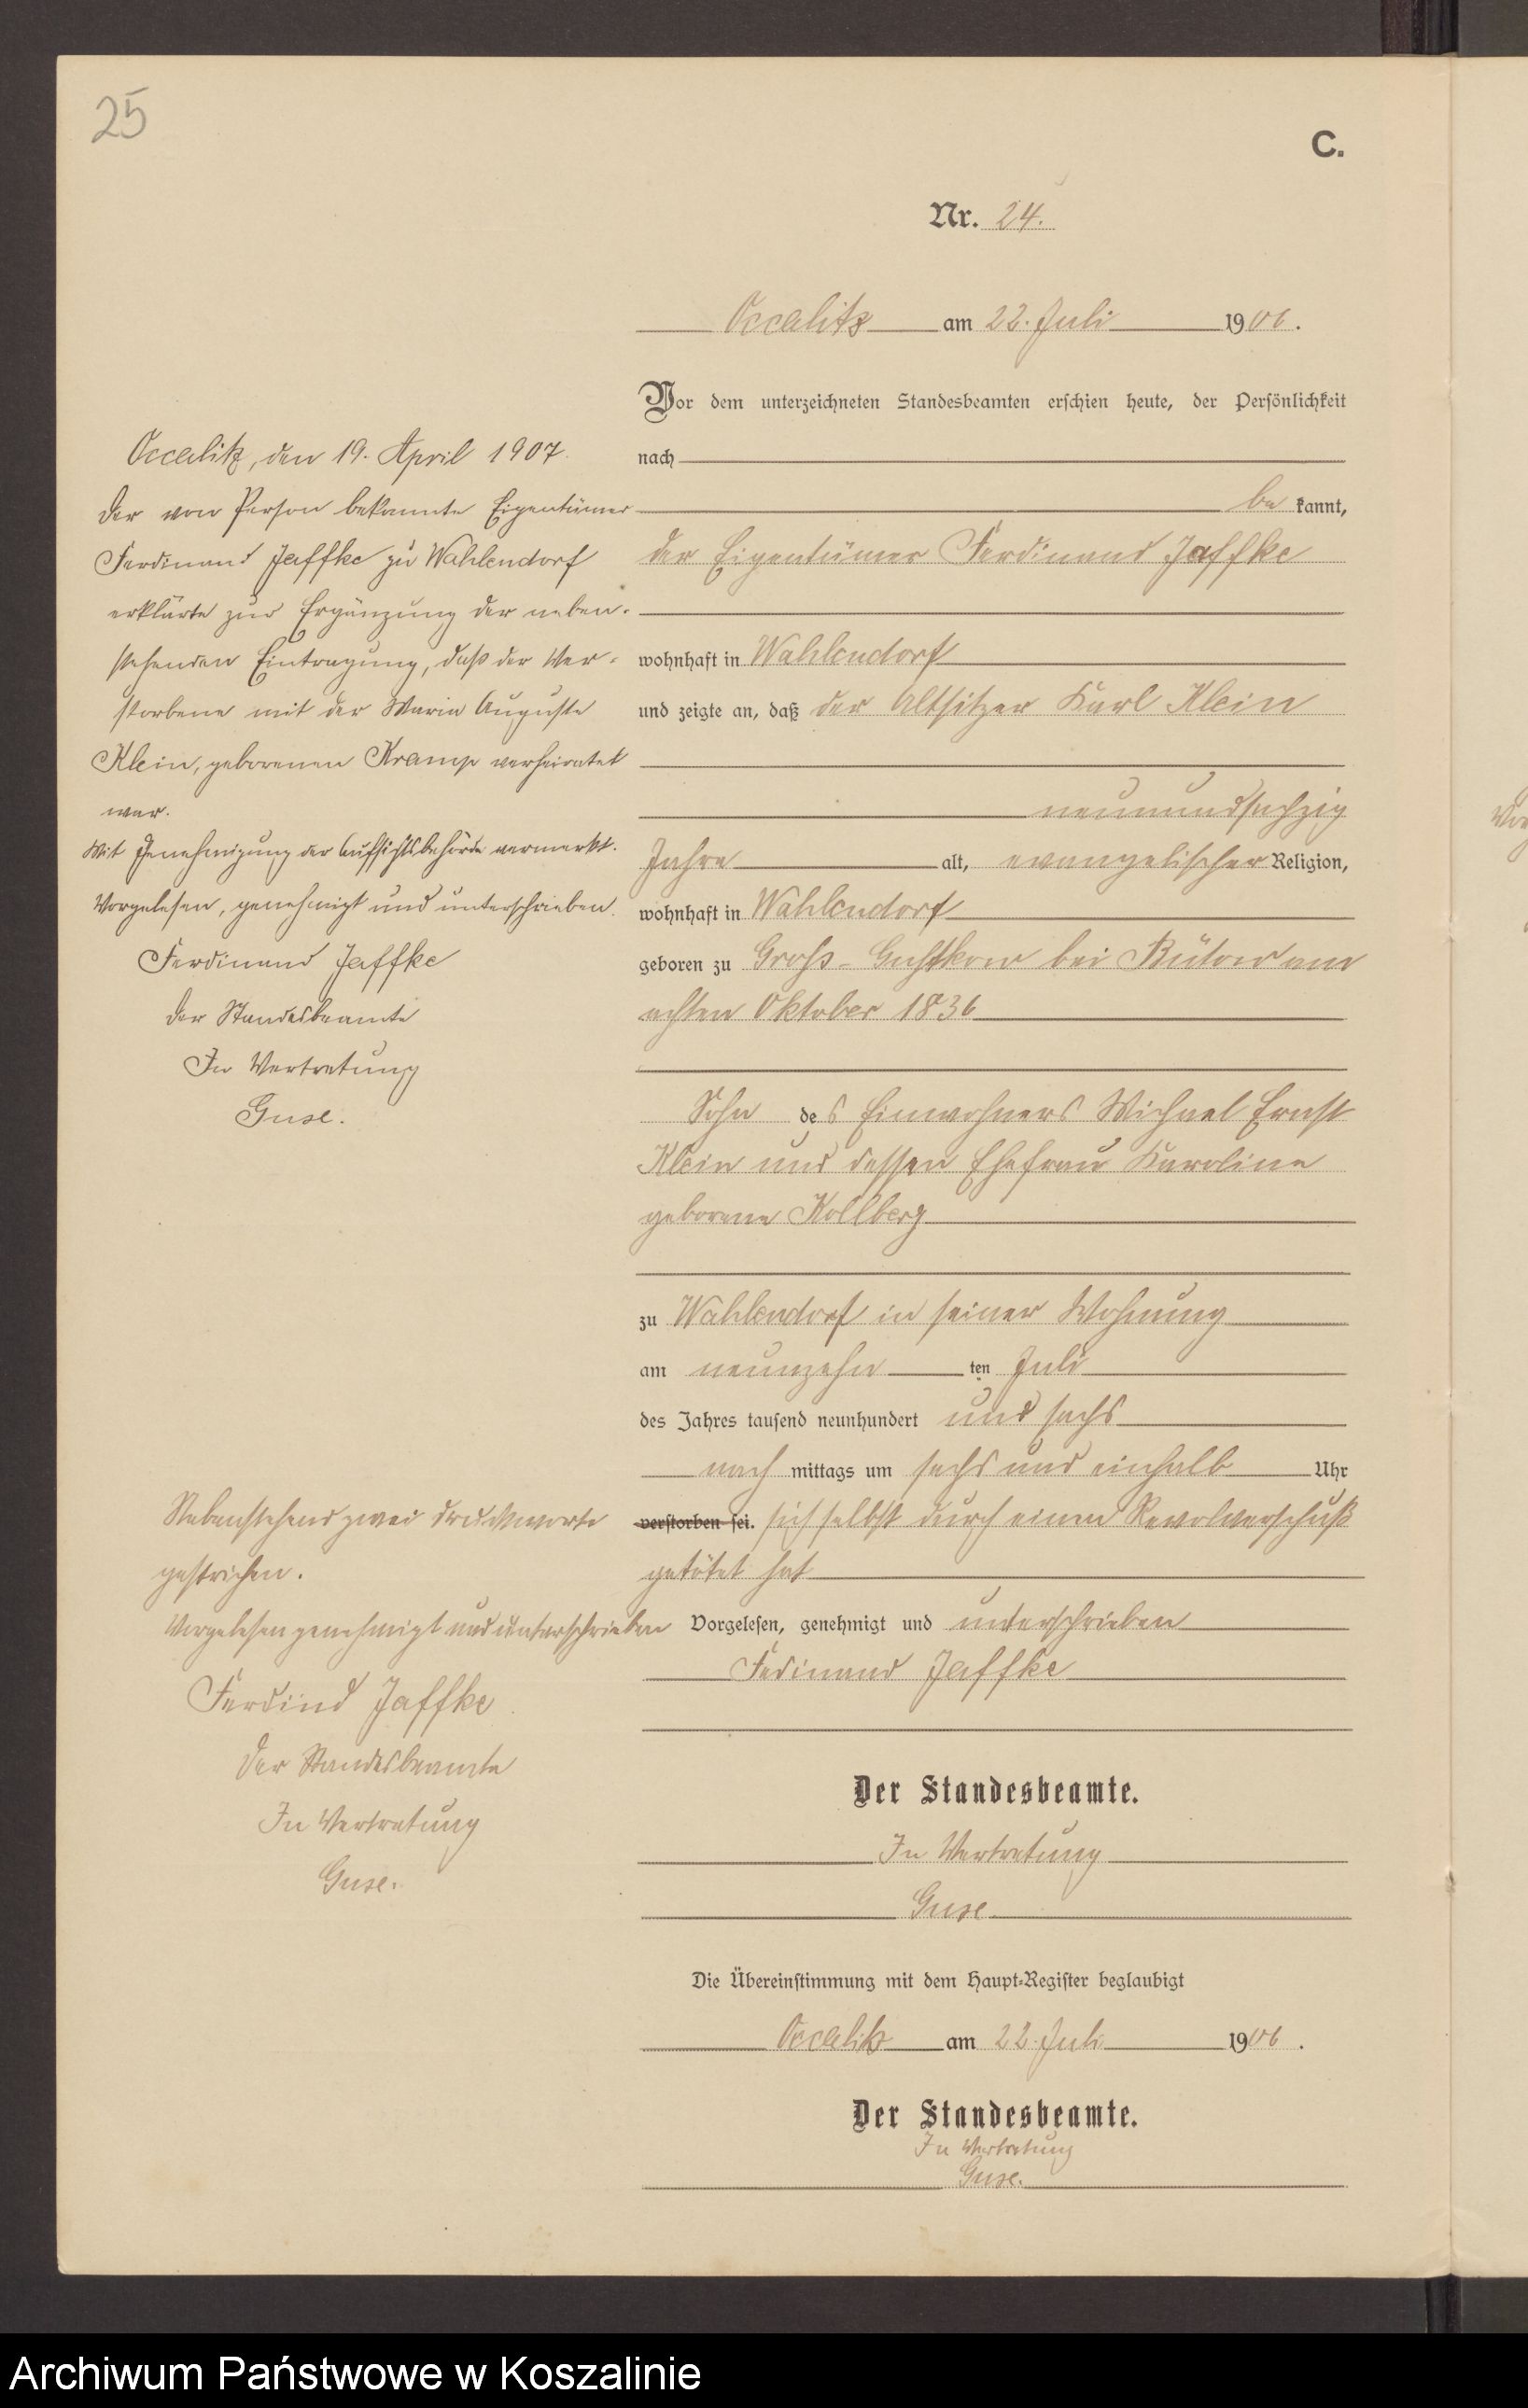 25
C.
Nr. 24.
Occalitz am 22. Juli 1906.
Vor dem unterzeichneten Standesbeamten erschien heute, der Persönlichkeit
nach
be kannt,
der Eigentümer Ferdinand Jaffke
wohnhaft in Wahlendorf
und zeigte an, daß der Altsitzer Karl Klein
neunundsechzig
Jahre alt, evangelischer Religion,
wohnhaft in Wahlendorf
geboren zu Groß-Gustkow bei Bütow am
achten Oktober 1836
Sohn des Einwohners Michael Ernst
Klein und dessen Ehefrau Karoline
geborene Kollberg
zu Wahlendorf in seiner Wohnung
am neunzehn ten Juli
des Jahres tausend neunhundert und sechs
nach mittags um sechs und einhalb Uhr
verstorben sei. sich selbst durch einen Revolverschuß
getötet hat
Vorgelesen, genehmigt und unterschrieben
Ferdinand Jaffke
Der Standesbeamte.
In Vertretung
Guse
Die Übereinstimmung mit dem Haupt-Register beglaubigt
Occalitz am 22. Juli 1906.
Der Standesbeamte.
In Vertretung
Guse.
Occalitz, den 19. April 1907.
Der von Person bekannte Eigentümer
Ferdinand Jaffke zu Wahlendorf
erklärte zur Ergänzung der neben-
stehenden Eintragung, daß der Ver-
storbene mit der Maria Auguste
Klein, geborenen Kramp verheiratet
war.
Mit Genehmigung der Aufsichtsbehörde vermerkt.
Vorgelesen, genehmigt und unterschrieben.
Ferdinand Jaffke
Der Standesbeamte
In Vertretung
Guse.
Nebenstehend zwei Druckworte
gestrichen.
Vorgelesen genehmigt und unterschrieben
Ferdind Jaffke
Der Standesbeamte
In Vertretung
Guse.
Archiwum Państwowe w Koszalinie